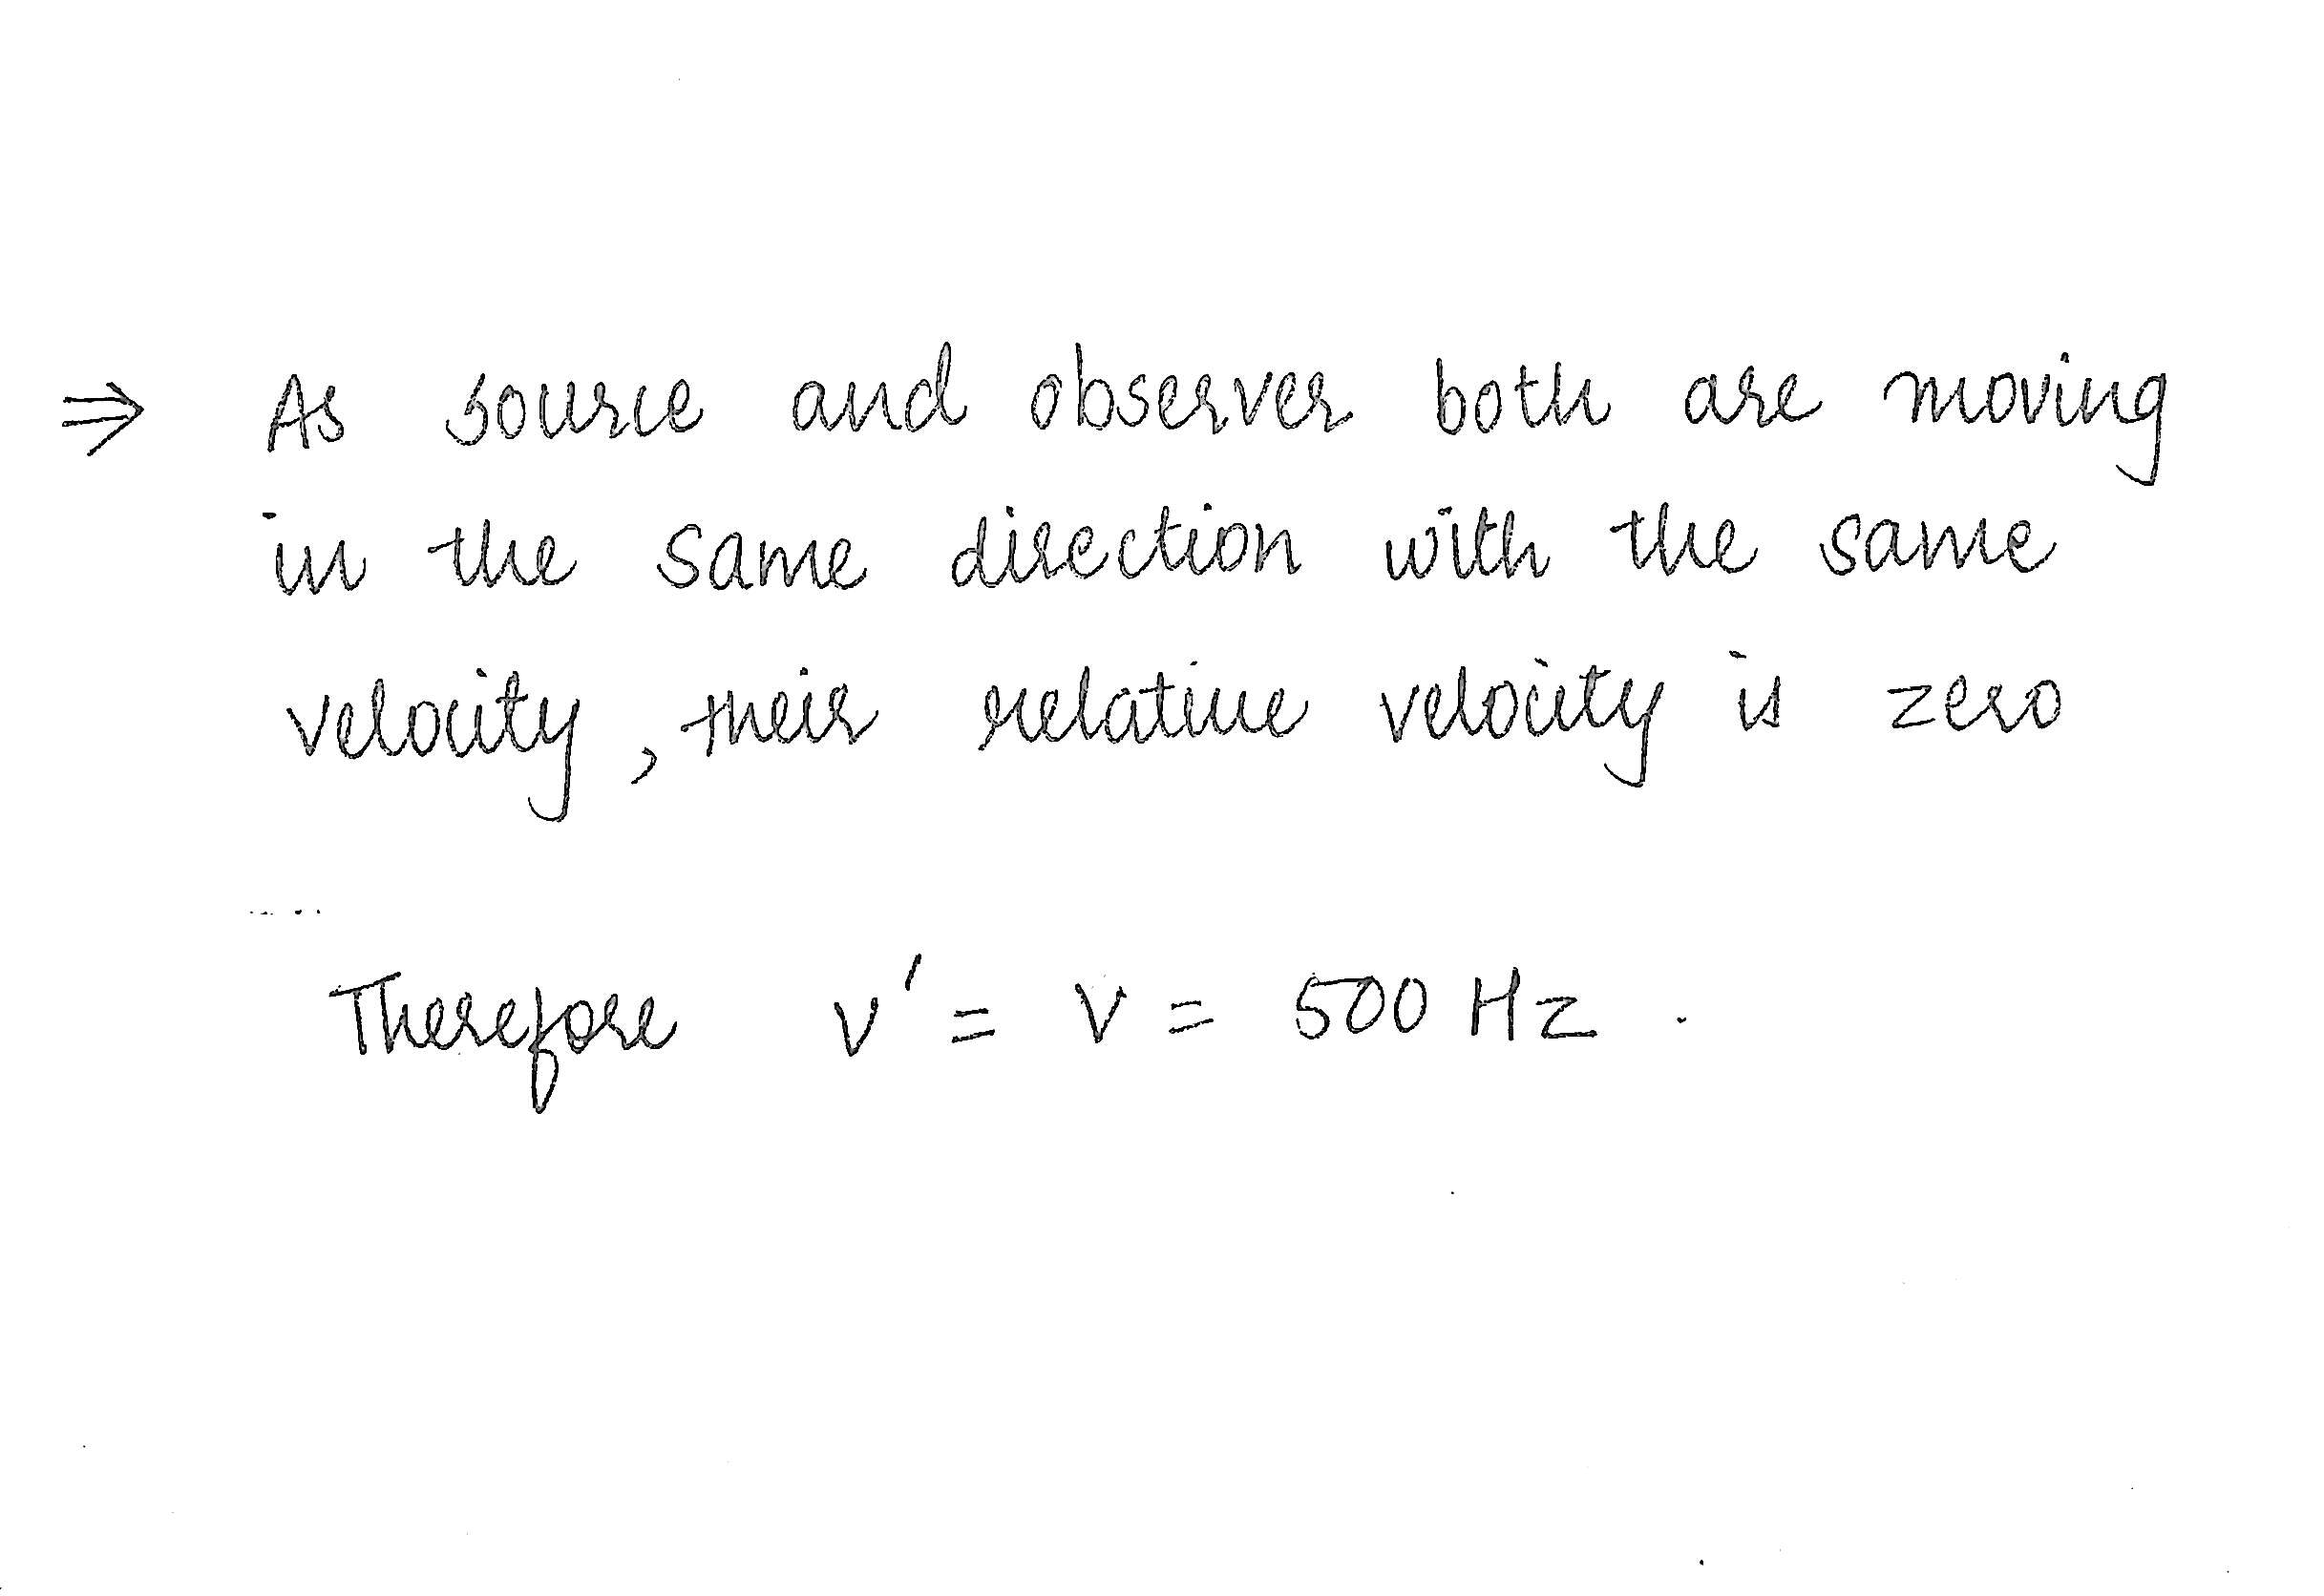 ⇒ As source and observer both are moving
in the same direction with the same
velocity, their relative velocity is zero
Therefore v' = v = 500 Hz.